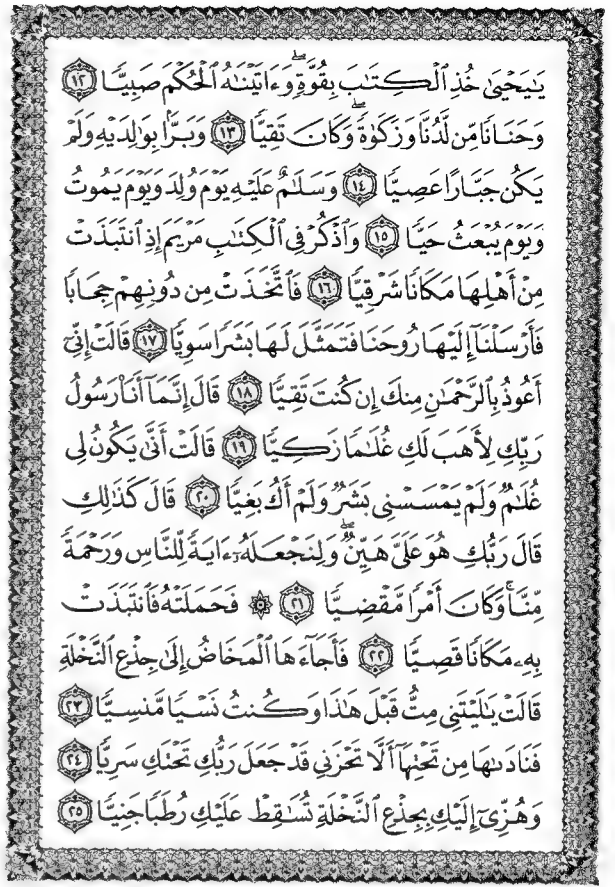 يَٰيَحۡيَىٰ خُذِ ٱلۡكِتَٰبَ بِقُوَّةٖۖ وَءَاتَيۡنَٰهُ ٱلۡحُكۡمَ صَبِيّٗا ١٢
وَحَنَانٗا مِّن لَّدُنَّا وَزَكَوٰةٗۖ وَكَانَ تَقِيّٗا ١٣ وَبَرَّۢا بِوَٰلِدَيۡهِ وَلَمۡ
يَكُن جَبَّارًا عَصِيّٗا ١٤ وَسَلَٰمٌ عَلَيۡهِ يَوۡمَ وُلِدَ وَيَوۡمَ يَمُوتُ
وَيَوۡمَ يُبۡعَثُ حَيّٗا ١٥ وَٱذۡكُرۡ فِي ٱلۡكِتَٰبِ مَرۡيَمَ إِذِ ٱنتَبَذَتۡ
مِنۡ أَهۡلِهَا مَكَانٗا شَرۡقِيّٗا ١٦ فَٱتَّخَذَتۡ مِن دُونِهِمۡ حِجَابٗا
فَأَرۡسَلۡنَآ إِلَيۡهَا رُوحَنَا فَتَمَثَّلَ لَهَا بَشَرٗا سَوِيّٗا ١٧ قَالَتۡ إِنِّيٓ
أَعُوذُ بِٱلرَّحۡمَٰنِ مِنكَ إِن كُنتَ تَقِيّٗا ١٨ قَالَ إِنَّمَآ أَنَا۠ رَسُولُ
رَبِّكِ لِأَهَبَ لَكِ غُلَٰمٗا زَكِيّٗا ١٩ قَالَتۡ أَنَّىٰ يَكُونُ لِي
غُلَٰمٞ وَلَمۡ يَمۡسَسۡنِي بَشَرٞ وَلَمۡ أَكُ بَغِيّٗا ٢٠ قَالَ كَذَٰلِكِ
قَالَ رَبُّكِ هُوَ عَلَيَّ هَيِّنٞۖ وَلِنَجۡعَلَهُۥٓ ءَايَةٗ لِّلنَّاسِ وَرَحۡمَةٗ
مِّنَّاۚ وَكَانَ أَمۡرٗا مَّقۡضِيّٗا ٢١ ۞ فَحَمَلَتۡهُ فَٱنتَبَذَتۡ
بِهِۦ مَكَانٗا قَصِيّٗا ٢٢ فَأَجَآءَهَا ٱلۡمَخَاضُ إِلَىٰ جِذۡعِ ٱلنَّخۡلَةِ
قَالَتۡ يَٰلَيۡتَنِي مِتُّ قَبۡلَ هَٰذَا وَكُنتُ نَسۡيٗا مَّنسِيّٗا ٢٣
فَنَادَىٰهَا مِن تَحۡتِهَآ أَلَّا تَحۡزَنِي قَدۡ جَعَلَ رَبُّكِ تَحۡتَكِ سَرِيّٗا ٢٤
وَهُزِّيٓ إِلَيۡكِ بِجِذۡعِ ٱلنَّخۡلَةِ تُسَٰقِطۡ عَلَيۡكِ رُطَبٗا جَنِيّٗا ٢٥